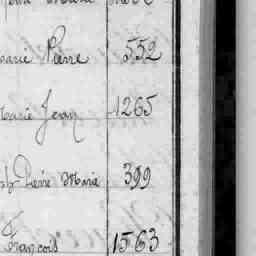 Marie Pierre 552
Marie Jean 1265
Pierre Marie 399
François 1563